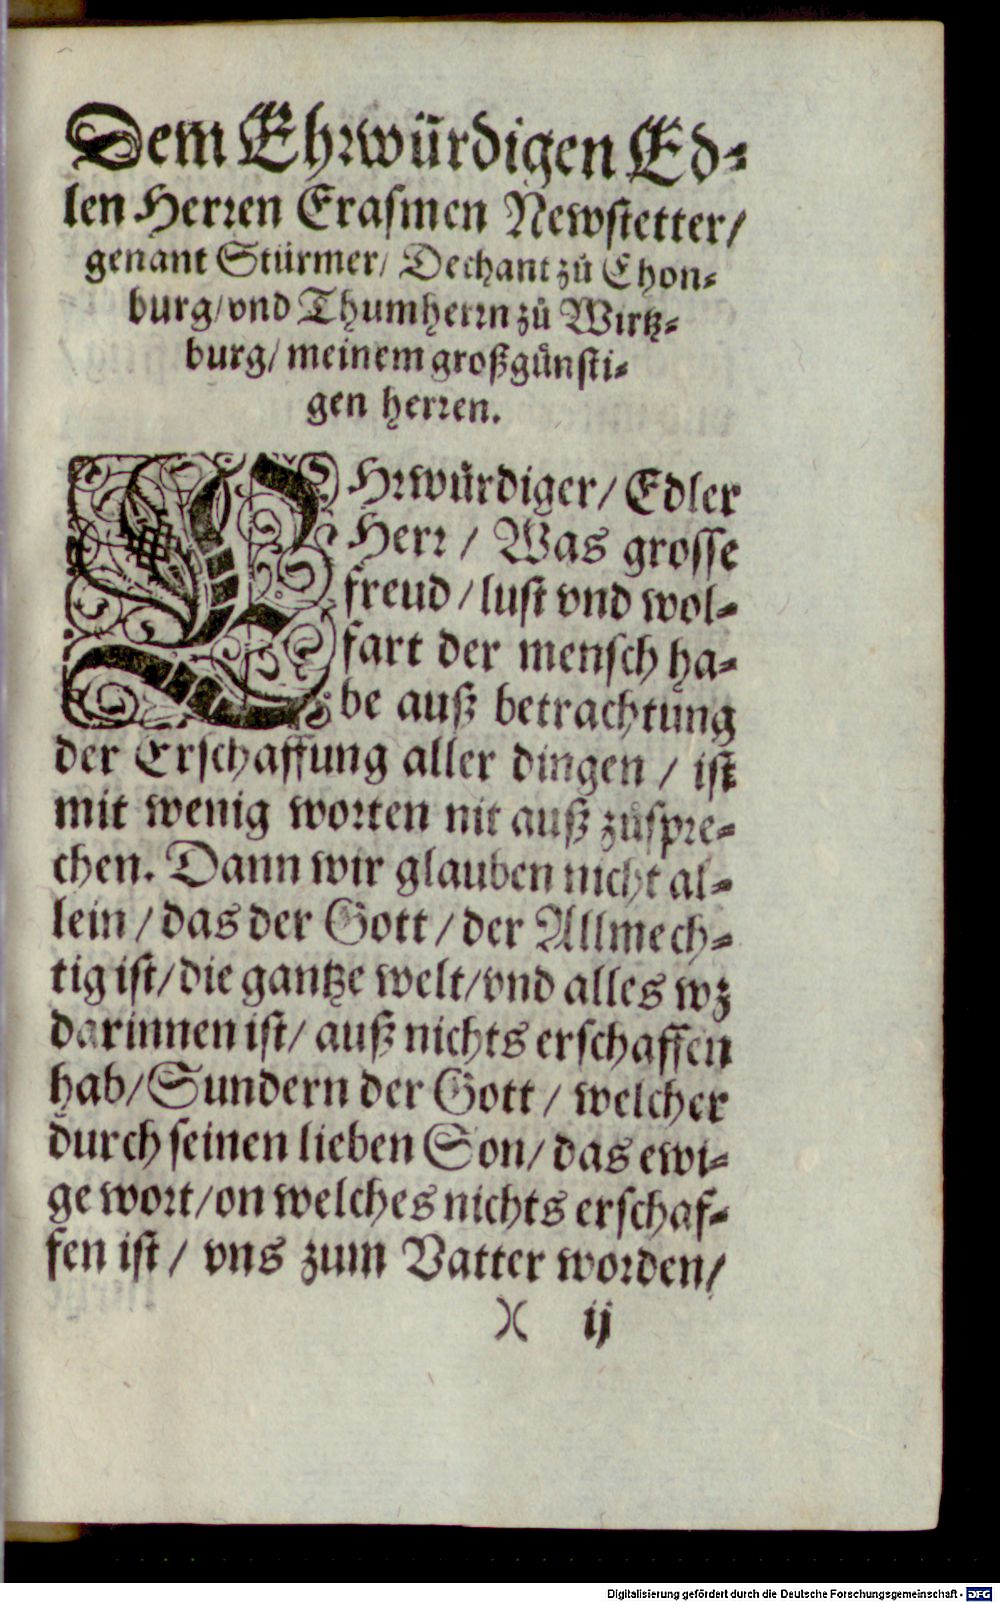 Dem Ehrwürdigen Ed-
len Herren Erasmen Newstetter/
genant Stürmer/ Dechant zů Chon-
burg/ vnd Thumherrn zů Wirtz-
burg/ meinem großgünsti-
gen herren.
EHrwürdiger/ Edler
Herr / Was grosse
freud / lust vnd wol-
fart der mensch ha-
be auß betrachtung
der Erschaffung aller dingen / ist
mit wenig worten nit auß zůspre-
chen. Dann wir glauben nicht al-
lein / das der Gott / der Allmech-
tig ist/ die gantze welt/ vnd alles wz
darinnen ist/ auß nichts erschaffen
hab/ Sundern der Gott / welcher
durch seinen lieben Son/ das ewi-
ge wort/ on welches nichts erschaf-
fen ist / vns zum Vatter worden/
)( ij
Digitalisierung gefördert durch die Deutsche Forschungsgemeinschaft - DFG